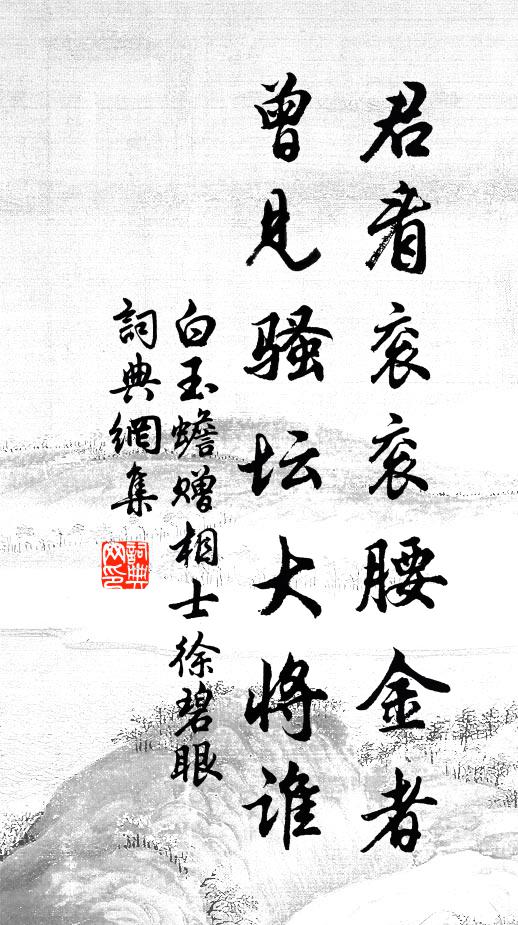 君看衮衮腰金者
曾见骚坛大将谁
白玉蟾赠相士徐碧眼
詞典網集
詞典网印